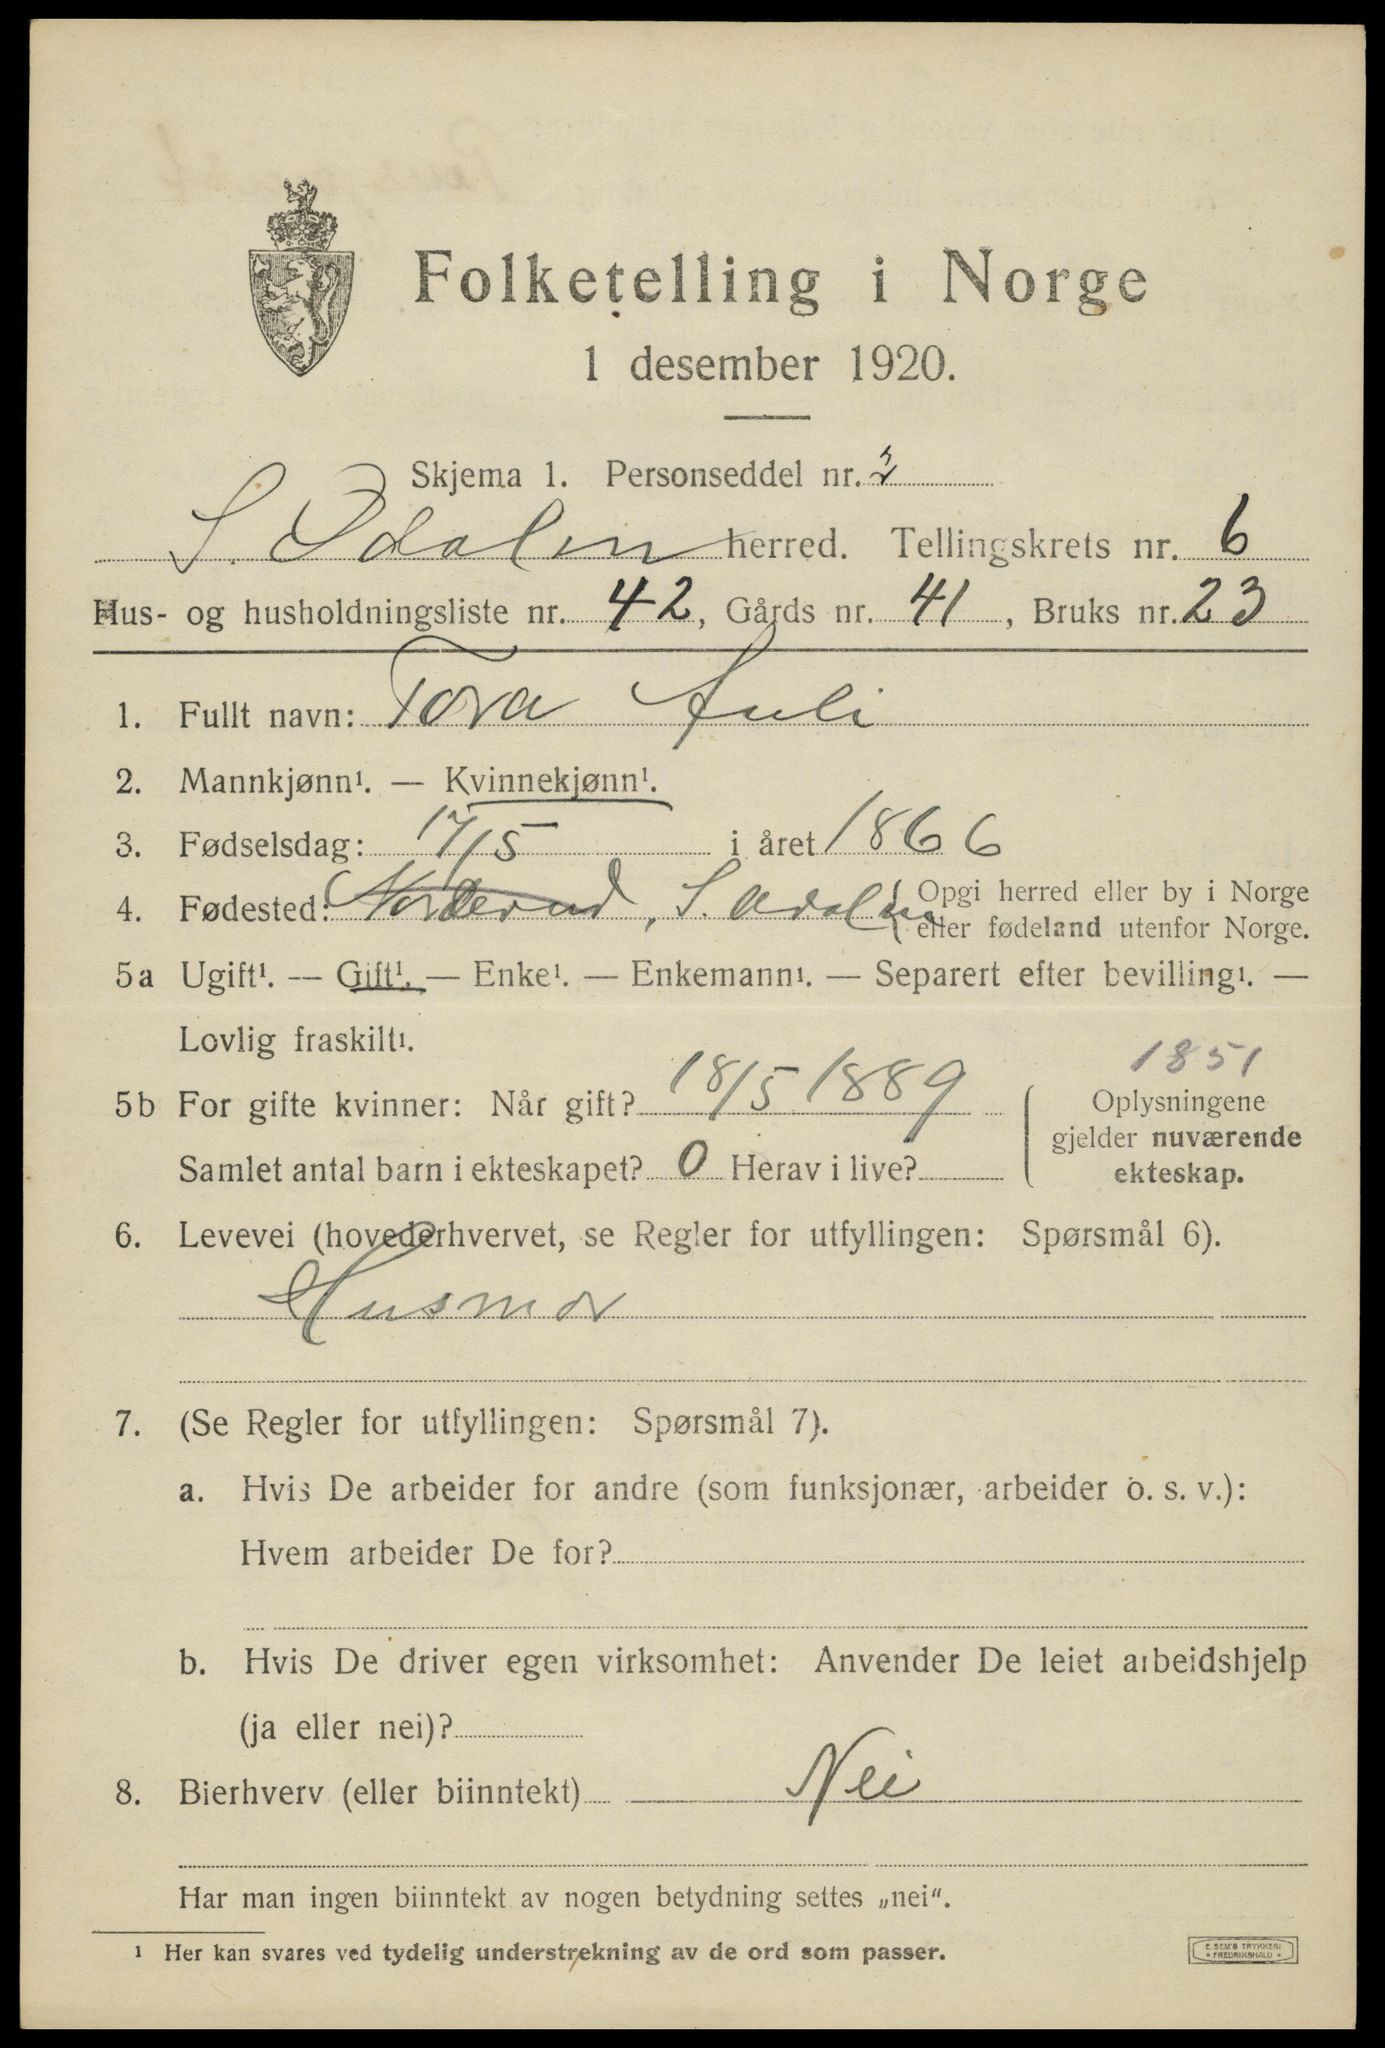 Folketelling i Norge
1 desember 1920.
Skjema 1. Personseddel nr. 2
S. Odalen herred. Tellingskrets nr. 6
Hus- og husholdningsliste nr. 42, Gårds nr. 41, Bruks nr. 23
1. Fullt navn: Tora Auli
2. Mannkjønn¹. — Kvinnekjønn¹.
3. Fødselsdag: 17/5 i året 1866
4. Fødested: , S. Odalen { Opgi herred eller by i Norge
eller fødeland utenfor Norge.
5a Ugift¹. — Gift¹. — Enke¹. — Enkemann¹. — Separert efter bevilling¹. —
Lovlig fraskilt¹.
1851
5b For gifte kvinner: Når gift? 18/5 1889
Samlet antal barn i ekteskapet? 0 Herav i live?
Oplysningene
gjelder nuværende
ekteskap.
6. Levevei (hovederhvervet, se Regler for utfyllingen: Spørsmål 6).
Husmor
7. (Se Regler for utfyllingen: Spørsmål 7).
a. Hvis De arbeider for andre (som funksjonær, arbeider o. s. v.):
Hvem arbeider De for?
b. Hvis De driver egen virksomhet: Anvender De leiet arbeidshjelp
(ja eller nei)?
8. Bierhverv (eller biinntekt) Nei
Har man ingen biinntekt av nogen betydning settes „nei“.
¹ Her kan svares ved tydelig understrekning av de ord som passer.
E. SEM'S TRYKKERI
* FREDRIKSHALD *